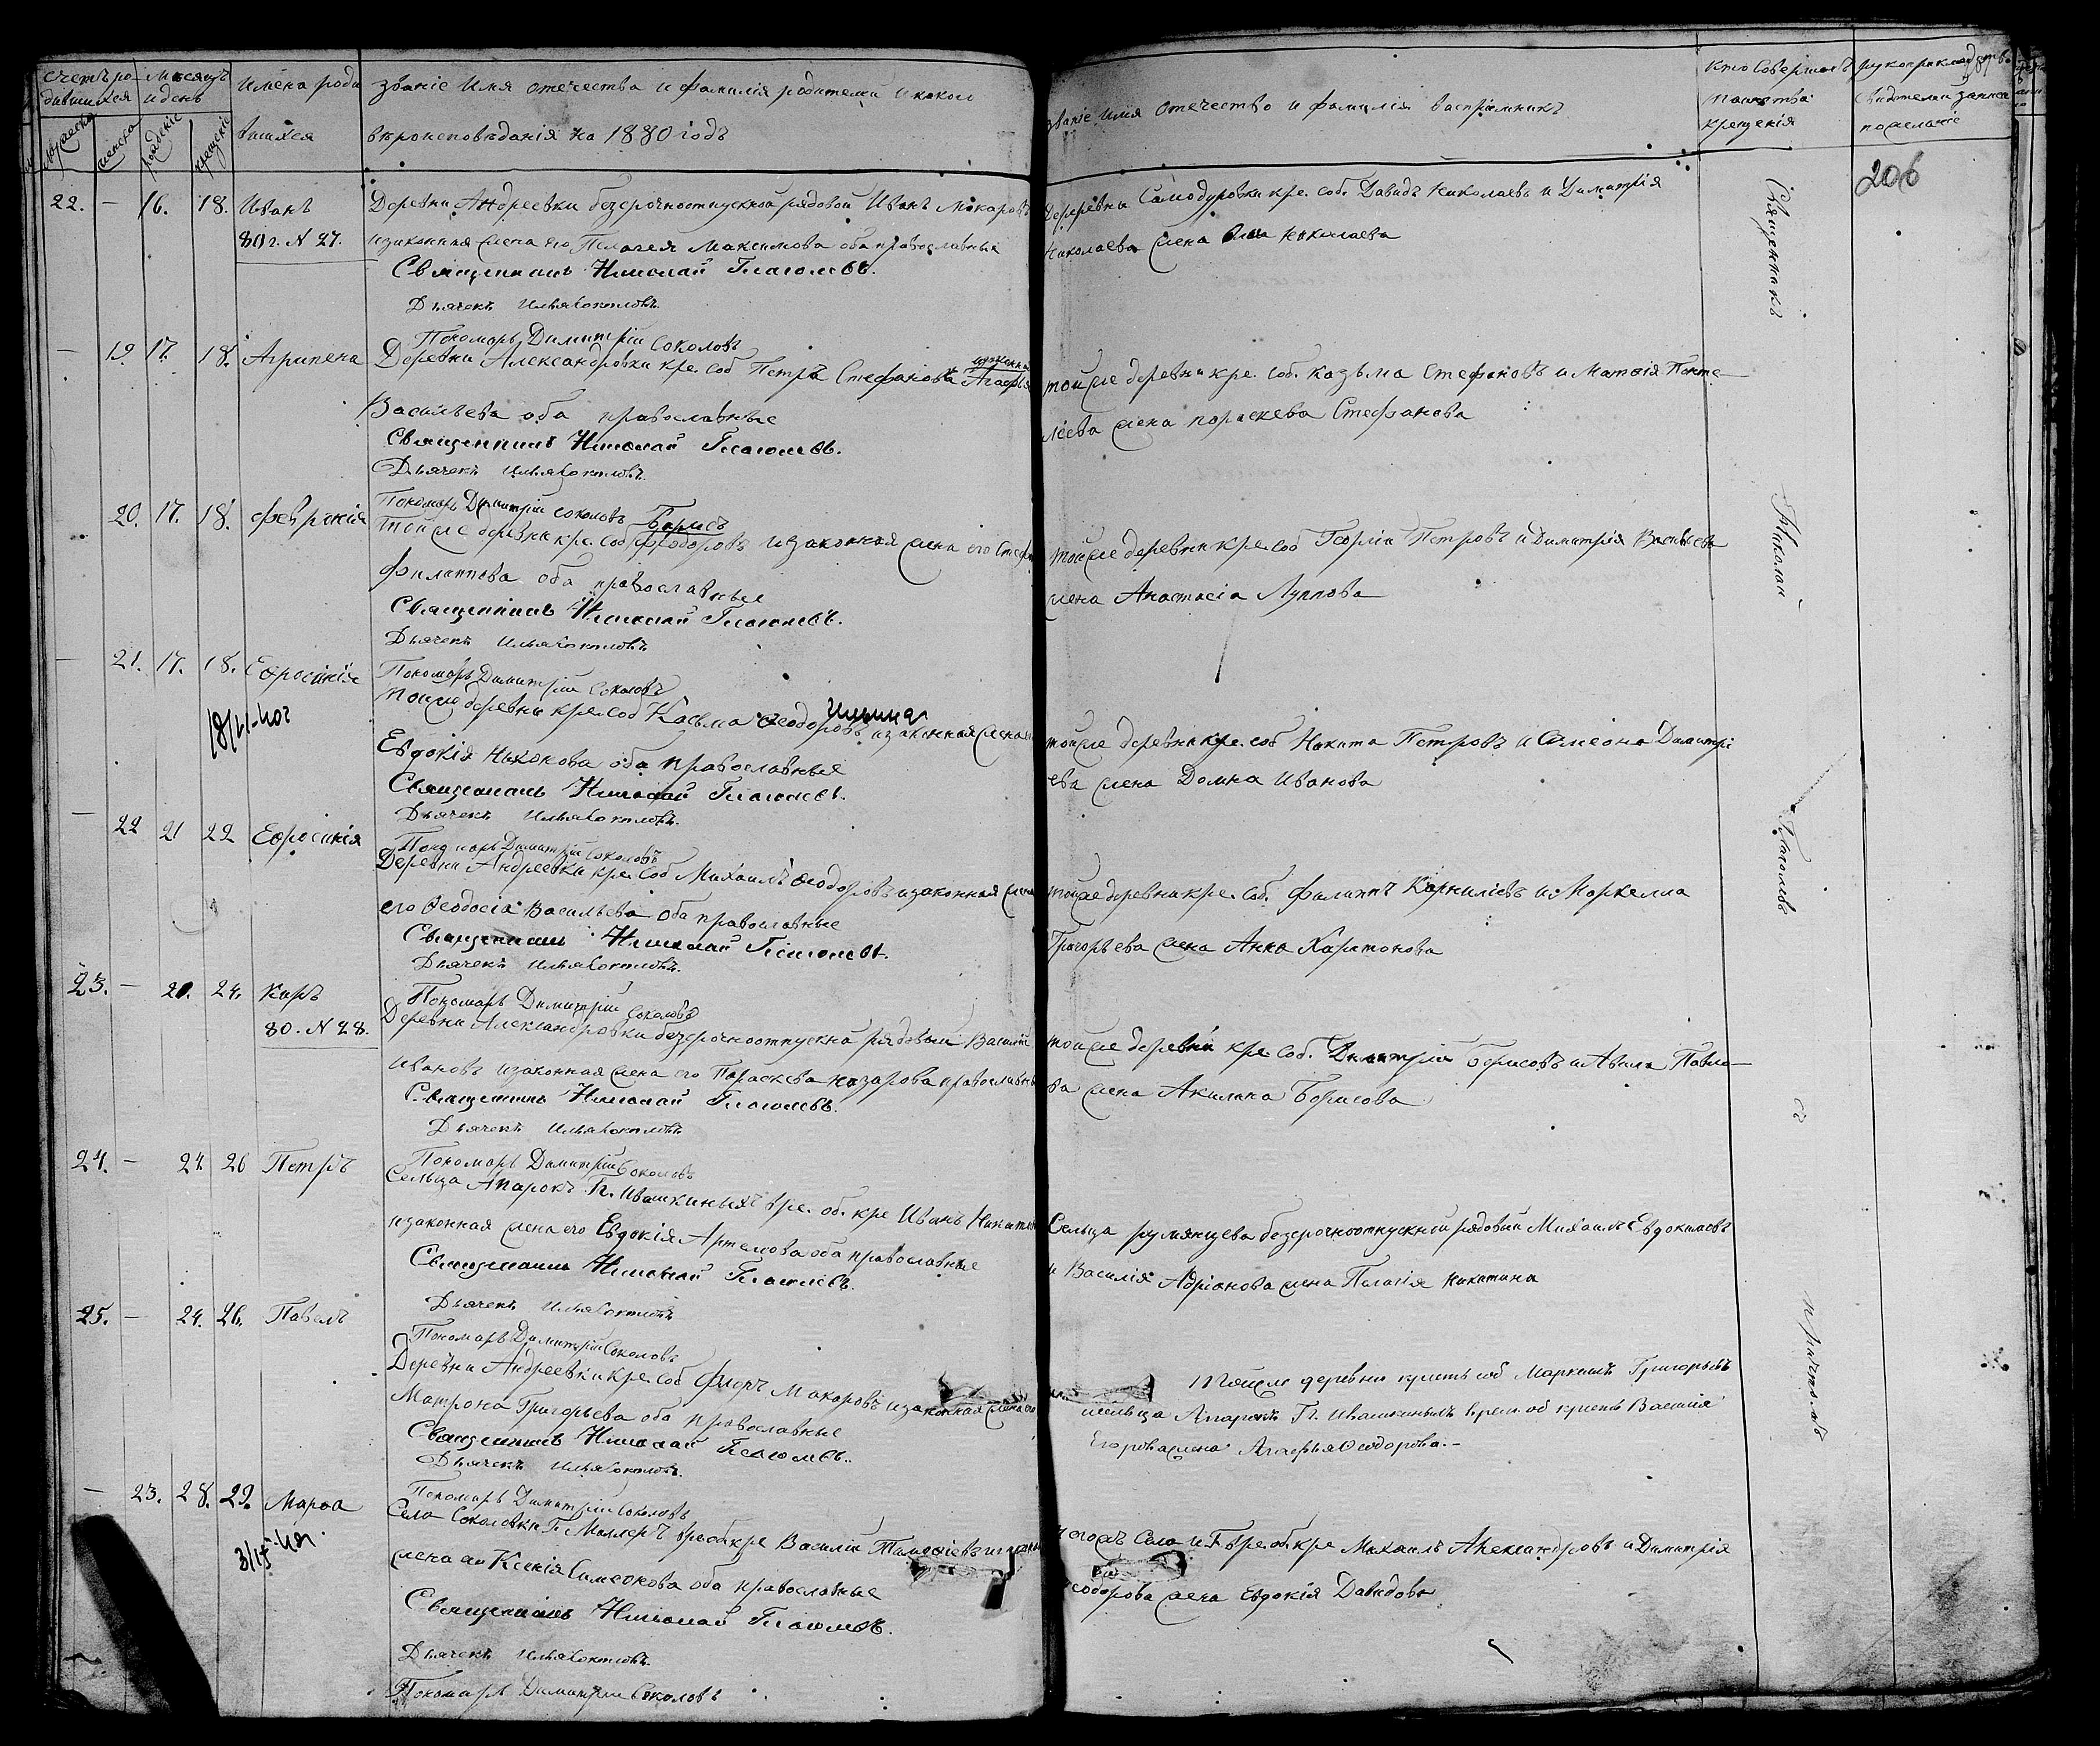 Счетъ ро-
дившихся
Мѣсяцъ
и день
Имена роди
вшихся
званіе Имя отечества и фамилія родителей и какого
вѣроисповѣданія на 1880 годъ
званіе имя отечество и фамилія воспріемниковъ
кто совершалъ
таинство
крещенія
рукоприкладство
свидетелей записи
по желанію
мужеска
женска
рожденіе
крещеніе
206
22. — 16. 18. Иванъ
Деревни Андреевки безсрочноотпускной рядовой Иванъ Макаровъ
Деревни Самодуровки кре. соб. Давидъ Николаевъ и Димитрія
80 г. N 27.
и законная жена его Пелагея Максимова оба православные
Николаева жена Николаева
Священникъ Николай Глаголевъ.
Дьячекъ Илья
Пономарь Димитрій Соколовъ
— 19. 17. 18. Агрипена
Деревни Александровки кре. соб Петръ Стефановъ Агафья
тойже деревни кре. соб. Козьма Стефановъ и Матвія Панте-
Васильева оба православные
лѣева жена Параскева Стефанова
Священникъ Николай Глаголевъ.
Дьячекъ Илья
Пономарь Димитрій Соколовъ
— 20. 17. 18. Февронія
Борисъ
тойже деревни кре. соб Феодоровъ и законная жена его
тойже деревни кре. соб Георгій Петровъ и Димитрія Васильева
Филиппова оба православные
жена Анастасія Луппова
Священникъ Николай Глаголевъ.
Дьячекъ Илья
Пономарь Димитрій Соколовъ
— 21. 17. 18. Ефросинія
Ильина
тойже деревни кре. соб Косьма Ѳеодоровъ и законная жена
тойже деревни кре. соб Никита Петровъ и Симеона Димитрі
Евдокія Никонова оба православные
ева жена Домна Иванова
Священникъ Николай Глаголевъ.
Дьячекъ Илья
Пономарь Димитрій Соколовъ
— 22 21 22 Ефросинія
Деревни Андреевки кре. соб Михаилъ Ѳеодоровъ и законная жена
тойже деревни кре. соб. Филиппъ Корниліевъ и Маркелла
его Ѳеодосія Васильева оба православные
Григорьева жена Анна Харитонова
Священникъ Николай Глаголевъ.
Дьячекъ Илья
Пономарь Димитрій Соколовъ
23. — 24. Киръ
Деревни Александровки безсрочноотпускной рядовый Василій
тойже деревни кре. соб. Димитрій Борисовъ и Павло-
80. N 28.
Ивановъ и законная жена его Параскева Назарова православные
ва жена Акилина Борисова
Священникъ Николай Глаголевъ.
Дьячекъ Илья
Пономарь Димитрій Соколовъ
24. — 24 26 Петръ
Сельца Апарокъ Гг. Ивашкиныхъ вре. об. кре Иванъ
Сельца Румянцева безсрочноотпускный рядовый Михаилъ Евдокимовъ
и законная жена его Евдокія Артемова оба православные
и Василія Адріанова жена Пелагія Никитина
Священникъ Николай Глаголевъ.
Дьячекъ Илья
Пономарь Димитрій Соколовъ
25. — 24. 26. Павелъ
Деревни Андреевки кре. соб Флоръ Макаровъ и законная жена его
тойже деревни крест соб Маркеллъ Григорьевъ
Матрона Григорьева оба православные
сельца Апарокъ Гг. Ивашкиныхъ врем. об крест Василія
Священникъ Николай Глаголевъ.
Егорова жена Агафья Ѳеодорова.-
Дьячекъ Илья
Пономарь Димитрій Соколовъ
— 23. 28. 29. Марѳа
Села Соколовки Г. Моллеръ вре об кре Василій
тогожъ Села и Г вре об кре Михаилъ Александровъ и Димитрія
жена его Ксенія Симеонова оба православные
Ѳеодорова жена Евдокія Давидова
Священникъ Николай Глаголевъ.
Дьячекъ Илья
Пономарь Димитрій Соколовъ
Священникъ
Николай
Глаголевъ
съ
причтомъ